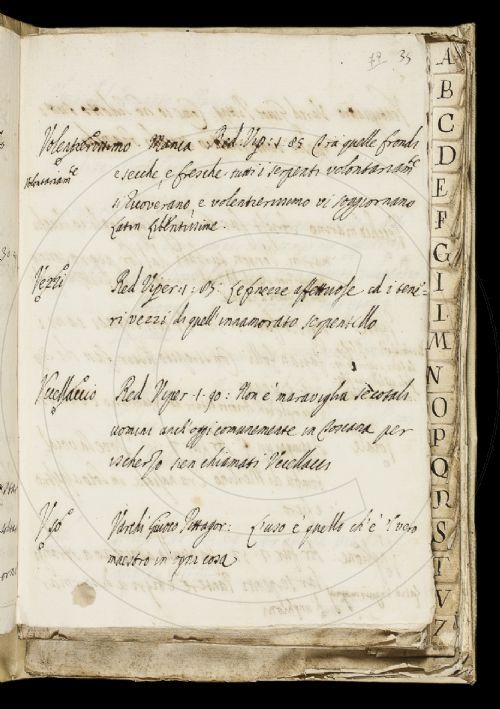 79 35
Volentierissimo Manca Red. Vip: 1. 85 Tra quelle frondi
Volontariam.te e secche, e fresche tutti i serpenti volontariam.te
si ricoverano, e volentierissimo vi soggiornano
Latin. Libentissime.
Vezzi Red. Viper. 1. 85. Le frezze affettuose ed i tene-
ri vezzi di quell'innamorato serpentello
Vecellaccio Red. Viper. 1. 90: Non è maraviglia se cotali
uomini anch'oggi comunemente in Toscana per
ischerzo sien chiamati Vecellacci
Uso Pittagor: L'uso è quello ch'è il vero
maestro in ogni cosa
A
B
C
D
E
F
G
I
L
M
N
O
P
Q
R
S
T
V
Z